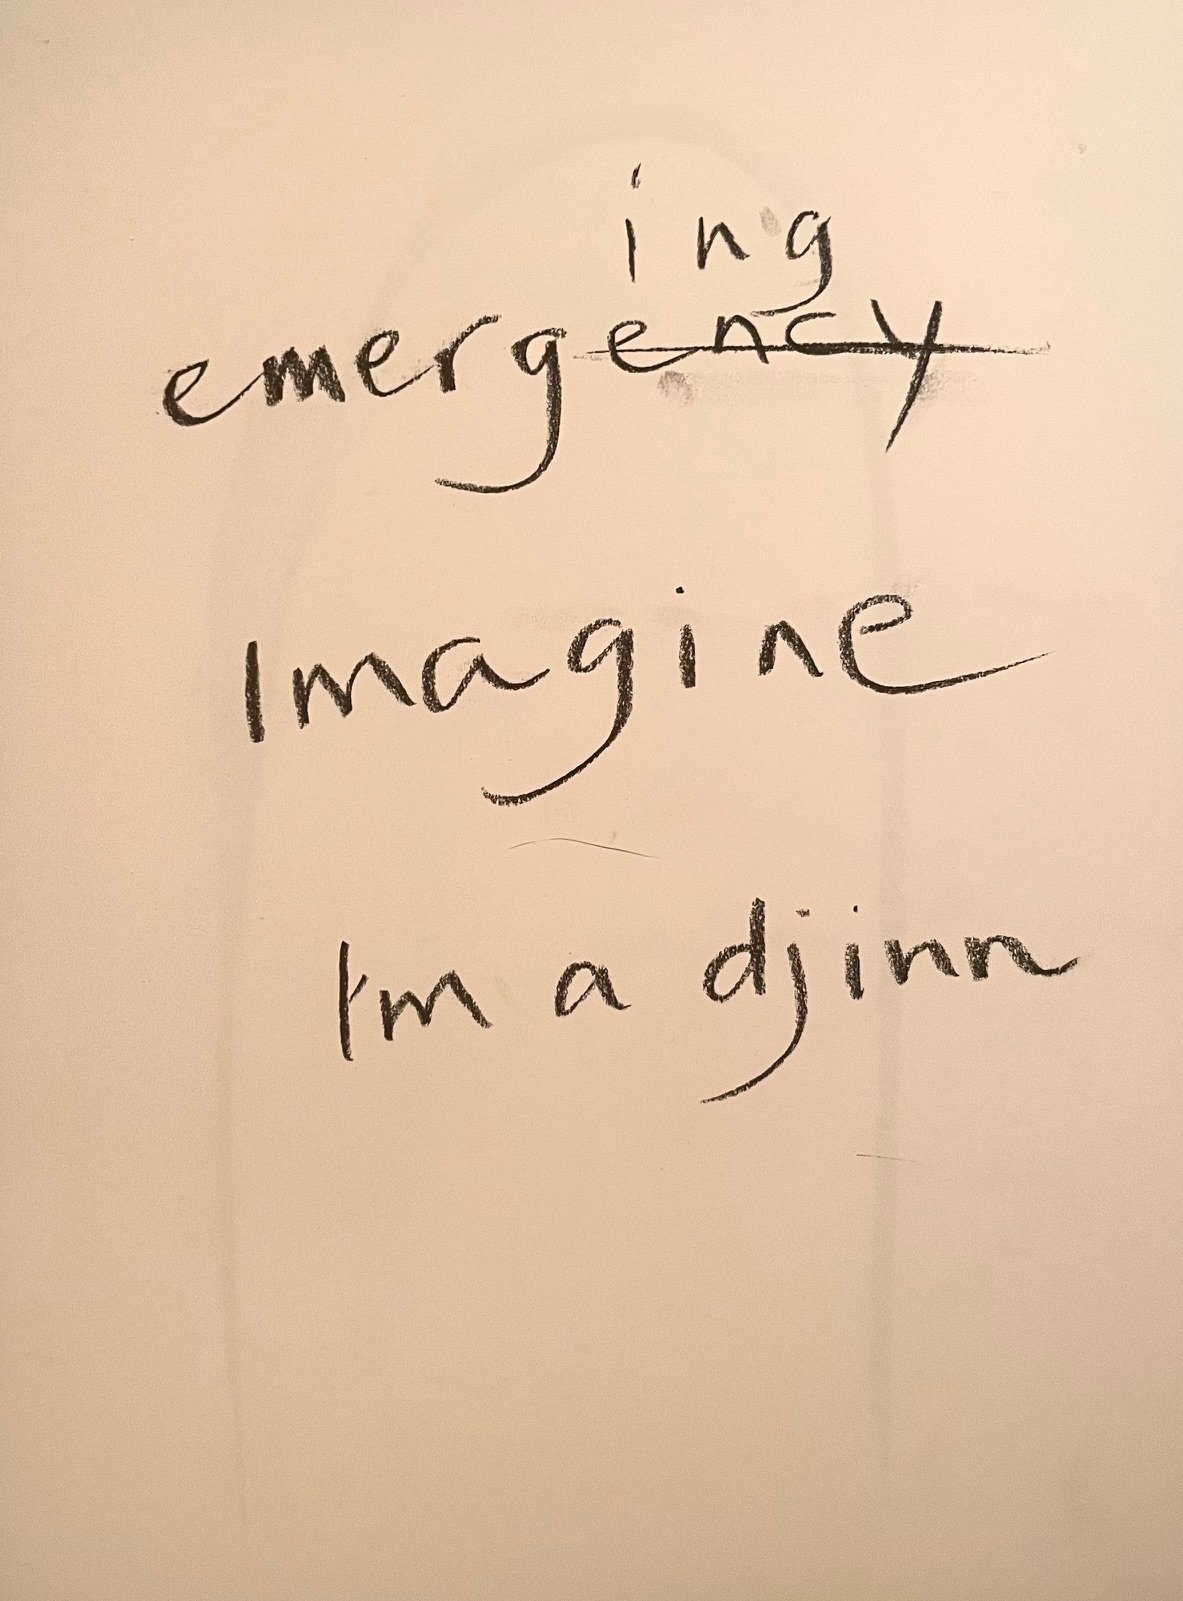 ing
emergency
Imagine
I'm a djinn